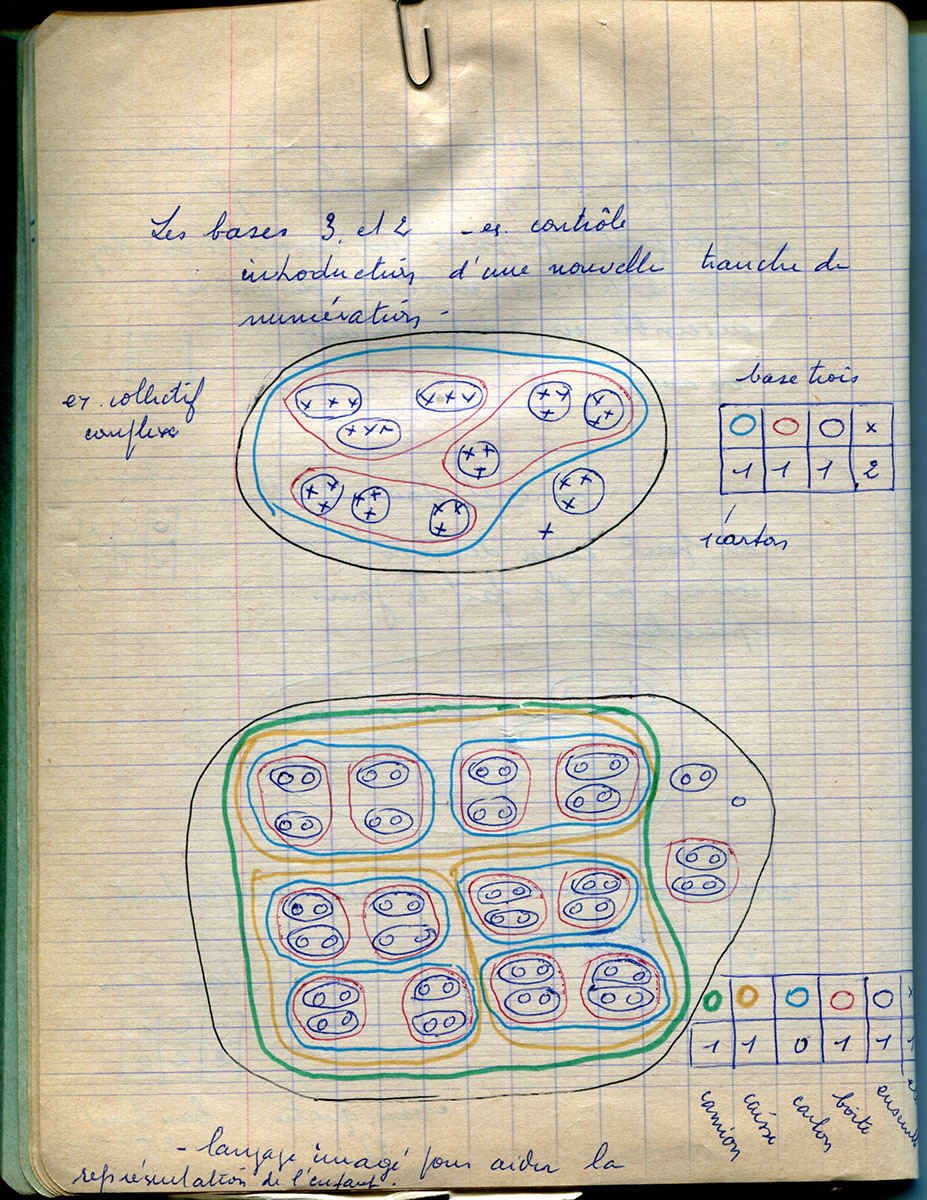 Les bases 3 et 2 - ex. contrôle
introduction d'une nouvelle tranche de
numération -
ex. collectif
complexe
base trois
x
1 1 1 2
1 carton
1 1 0 1 1 1
camion caisse carton boîte ensemble
- langage imagé pour aider la
représentation de l'enfant.